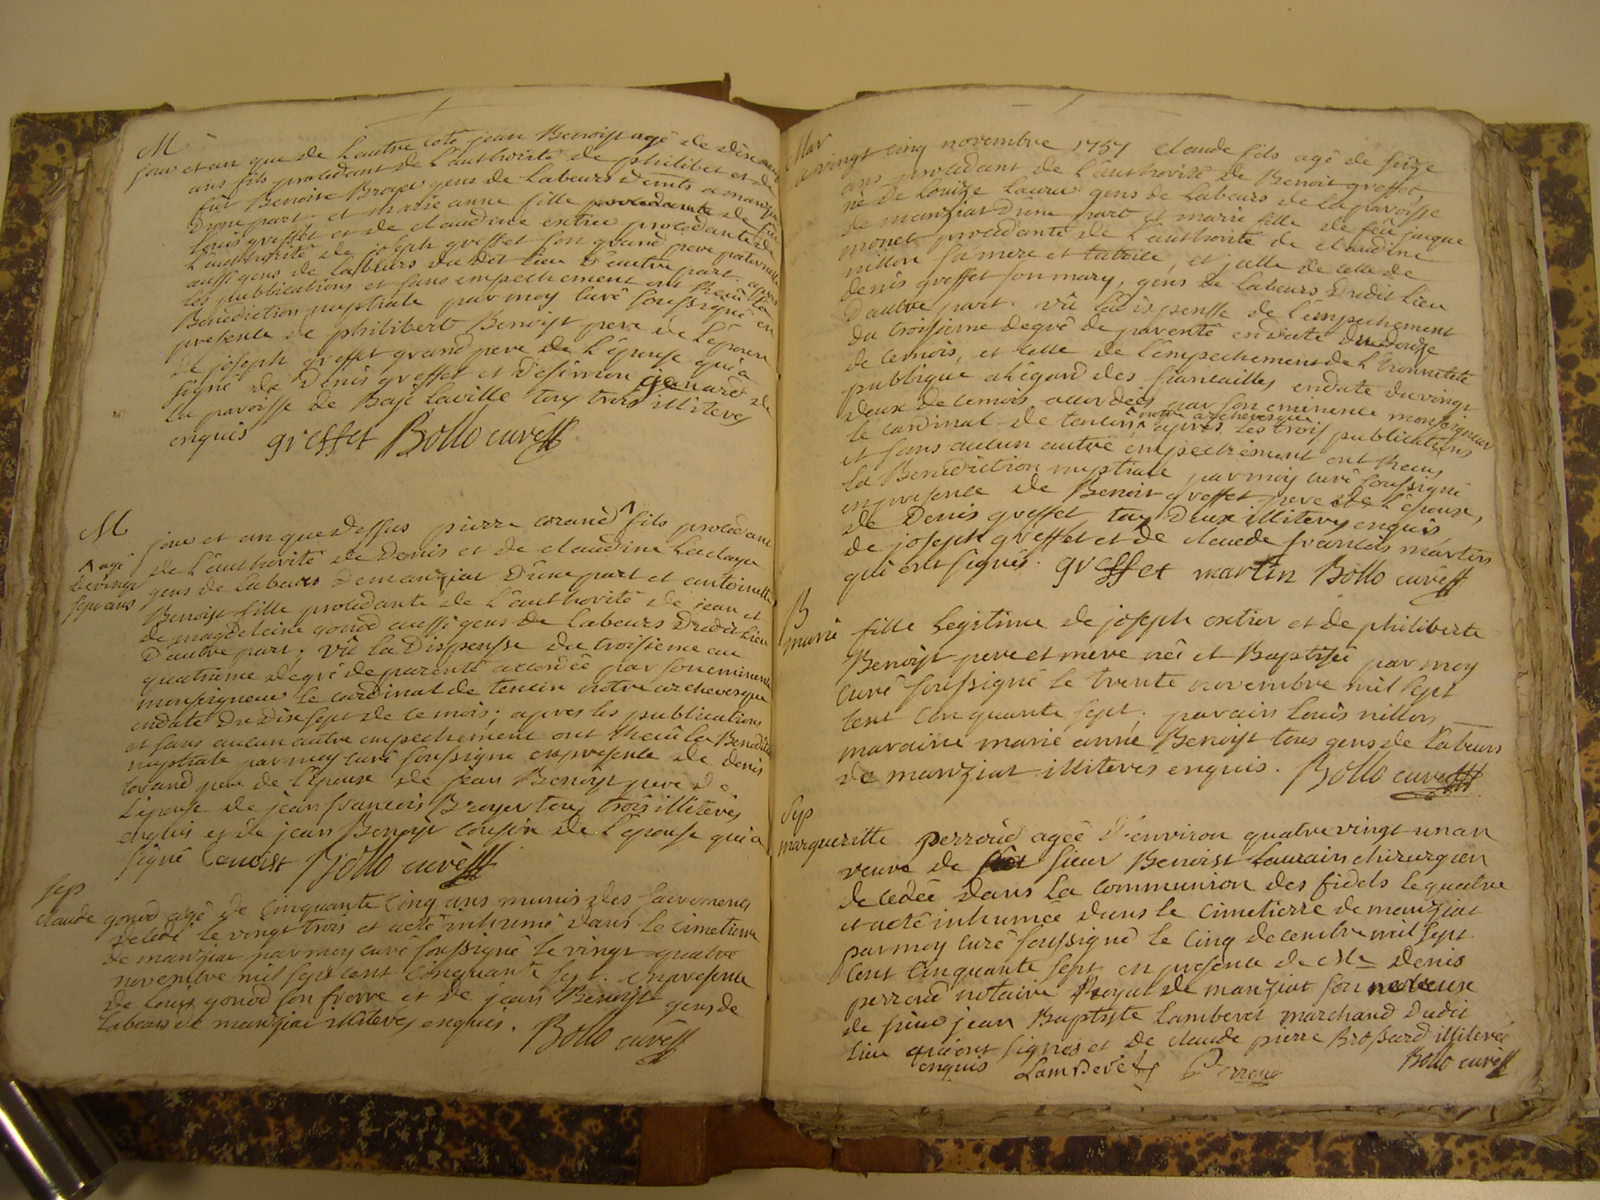 M
jour et an que de l'autre coté jean Benoist agé de dix
ans fils procedant de l'authorité de philibet et de
fue Benoite Broyer gens de labeurs d'emts a manziat
d'une part. et marie anne fille procedante de feu
Louis greffet et de claudine extier procedante de
l'authorité de joseph greffet son grand pere paternel
aussi gens de labeurs du dit lieu d'autre part. après
les publications et sans empechement ont Receu la
Benediction nuptiale par moy curé soussigné en
presence de philibert Benoist pere de l'époux
de joseph greffet grand pere de l'épouse qui a
signé de Denis greffet et de simon de
la paroisse de Bagé la ville tous trois illiteres
enquis greffet Bollo curé
M
jour et an que dessus pierre corand ^ fils procedant
^ agé
de vingt
sept ans
de l'authorité de Denis et de claudine
gens de labeurs de manziat d'une part et antoinette
Benoist fille procedante de l'authorité de jean et
de magdeleine gonod aussi gens de labeurs dudit lieu
d'autre part; vû la dispense du troisieme au
quatrieme degré de parenté accordée par son eminence
monseigneur le cardinal de tencin notre archevesque
en date du dix sept de ce mois; apres les publications
et sans aucun autre empechement ont Receu la Benediction
nuptiale par moy curé soussigné en presence de denis
corand pere de l'époux de jean Benoist pere de
l'épouse de jean françois Broyer tous trois illiteres
enquis et de jean Benoist cousin de l'épouse qui a
signé benoist Bollo curé
Sep
claude gonod agé de cinquante cinq ans munis des sacremens
décédé le vingt trois et a eté inhumé dans le cimetierre
de manziat par moy curé soussigné le vingt quatre
novembre mil sept cent cinquante sept. en presence
de Louis gonod son frerre et de jean Benoist gens de
labeurs de manziat illiteres enquis. Bollo curé
Mar
a vingt cinq novembre 1757 claude fils agé de seize
ans procedant de l'authorité de Benoit greffet
ne de Louize Laurens gens de labeurs de la paroisse
de manziat d'une part et marie fille de feu jacque
monet procedante de l'authorité de claudine
nillon sa mere et tutrice, et jelle de celle de
denis greffet son mary, gens de labeurs dudit lieu
d'autre part. vû la dispensse de l'empechement
du troisieme degré de parenté en date du douze
de ce mois, et celle de l'empechement de l'honneteté
publique a l'égard des fiancailles en date du vingt
deux de ce mois accordées par son eminence monseigneur
le cardinal de tencin ^ notre archevesque apres les trois publications
et sans aucun autre empechement ont Receu
la Benediction nuptiale par moy curé soussigné
en presence de Benoist greffet pere de l'époux,
de Denis greffet tous deux illiteres enquis
de joseph greffet et de claude françois martin
qui ont signés. greffet martin Bollo curé
B
marie fille legitime de joseph extier et de philiberte
Benoist pere et mere née et Baptisée par moy
curé soussigné le trente novembre mil sept
cent cinquante sept. parain Louis nillon
maraine marie anne Benoist tous gens de labeurs
de manziat illiteres enquis. Bollo curé
Sep
marguerette perroud agée d'environ quatre vingt un an
veuve de sieur Benoist Laurain chirurgien
decedée dans la communion des fidels le quatre
et a eté inhumée dans le cimetierre de manziat
par moy curé soussigné le cinq decembre mil sept
cent cinquante sept en presence de Me Denis
perroud notaire Royal de manziat son neveu
de sieur jean Baptiste Lamberet marchand dudit
lieu qui ont signés et de claude pierre Brossard illiteré
enquis Lamberet Perroud Bollo curé